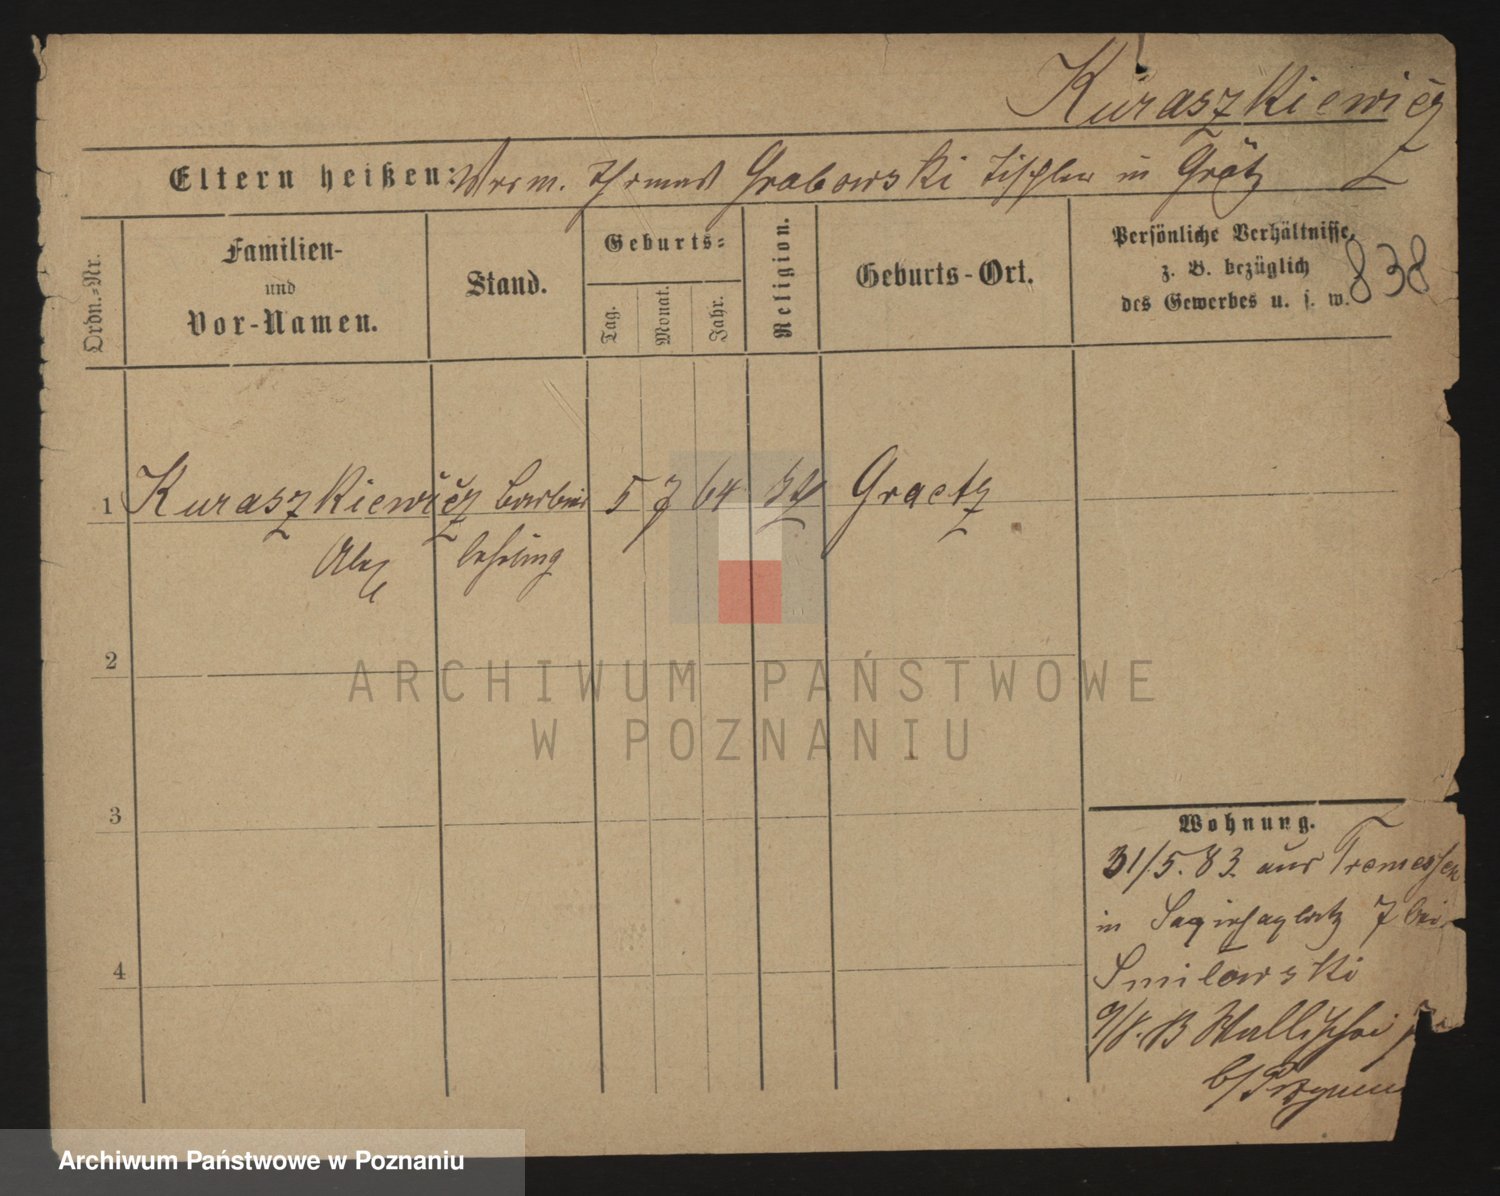 Kuraszkiewicz
Eltern heißen: Vorm. Thomas Grabowski Tischler in Grätz
838
Ordn.-Nr.
Familien-
und
Vor-Namen.
Stand.
Geburts-
Tag.
Monat.
Jahr.
Religion.
Geburts-Ort.
Persönliche Verhältnisse,
z. B. bezüglich
des Gewerbes u. s. w.
1 Kuraszkiewicz Barbier 5 7 64 Graetz
Alex lehrling
2
3
4
Wohnung.
31/5. 83 aus Tremessen
in Sapiehaplatz 7 bei
Smilowski
9/8. 83 Wallischei
b/
ARCHIWUM PAŃSTWOWE
W POZNANIU
Archiwum Państwowe w Poznaniu